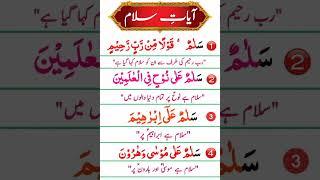 آیاتِ سلام
1 سَلٰمٌ قَوْلًا مِّنْ رَّبٍّ رَّحِیْمٍ
"رب رحیم کی طرف سے ان کو سلام کہا گیا ہے"
2 سَلٰمٌ عَلٰی نُوْحٍ فِی الْعٰلَمِیْنَ
"سلام ہے نوح پر تمام دنیا والوں میں"
3 سَلٰمٌ عَلٰۤی اِبْرٰهِیْمَ
"سلام ہے ابراہیم پر"
4 سَلٰمٌ عَلٰی مُوْسٰی وَهٰرُوْنَ
"سلام ہے موسیٰ اور ہارون پر"